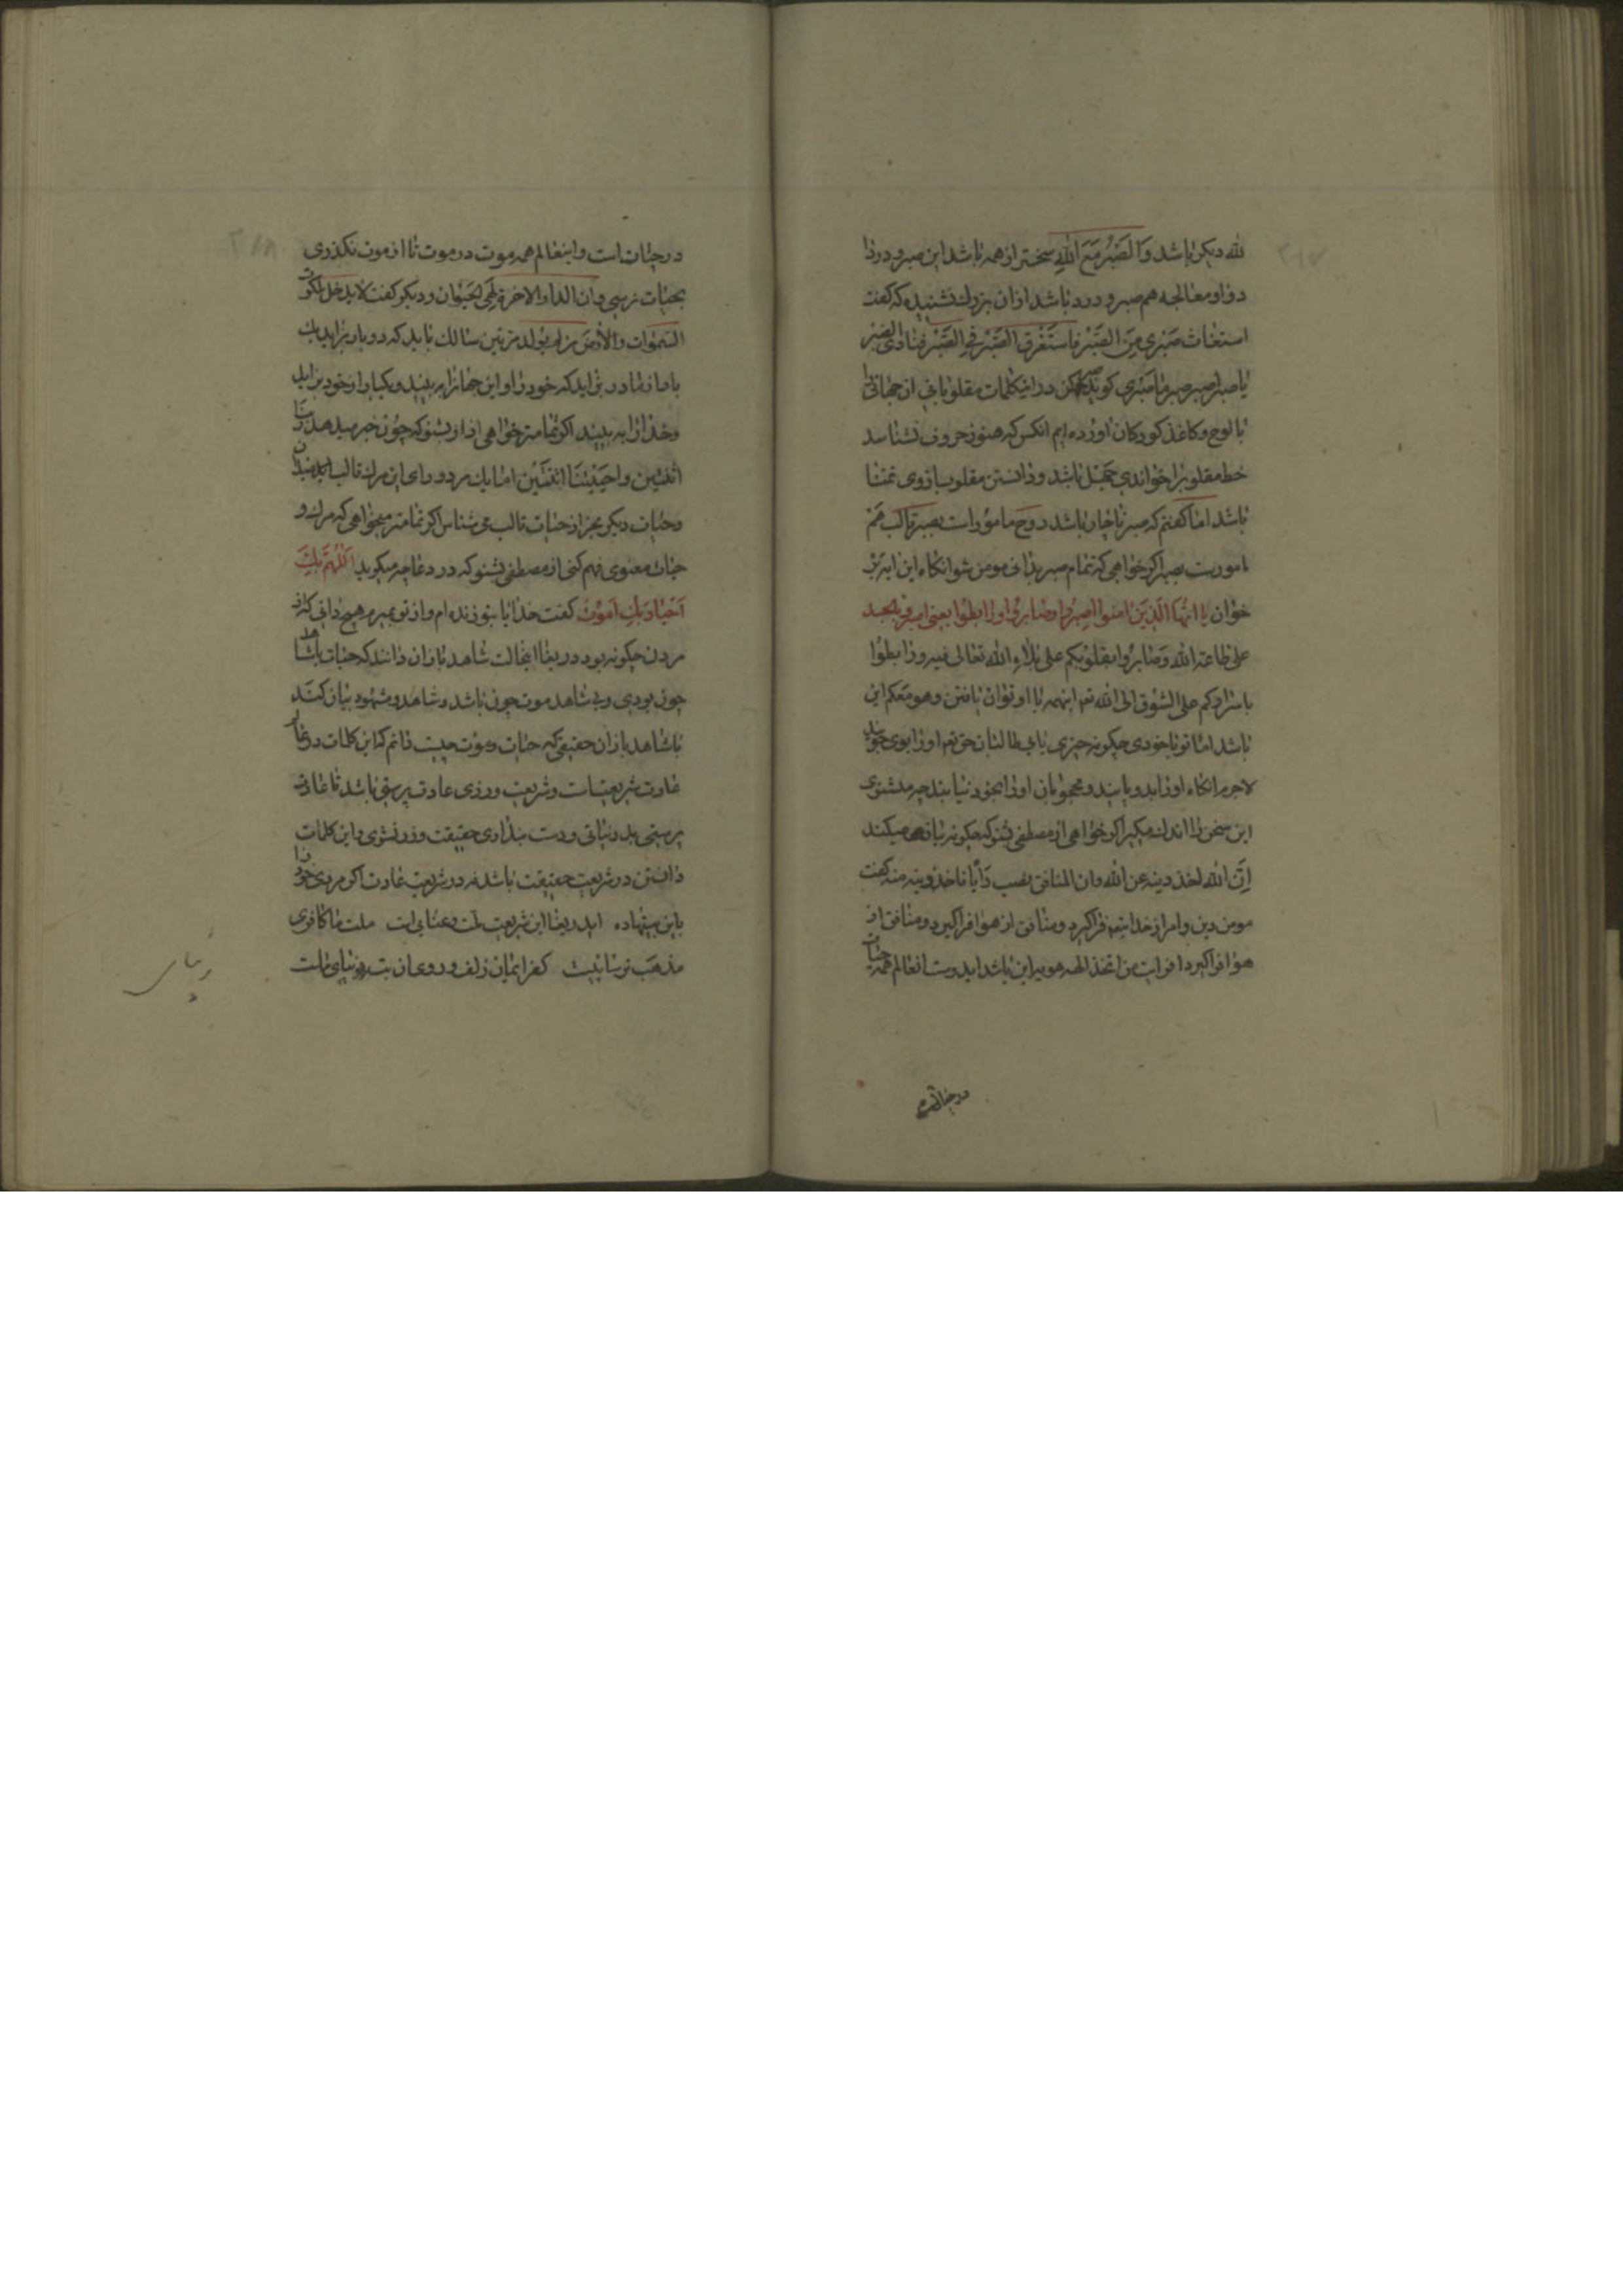 لله دیکر باشد وَالصَّبْرُ مَعَ اللهِ سختر از همه باشد این صبر و درد را
دوا و معالجه هم صبر و درد باشد از آن بزرك نشنیده که کفت
استغاث صَبْری مِنَ الصَّبْر فاستَغْرق الصَّبْر فِی الصَّبْر فنادی الصَّبر
یا صبرا صبر صبر ما صَبْری کوید در این کلمات مقلوبانی از جهانی
با لوح و کاغذ کودکان اورده ایم انکس که هنوز حروف نشناسد
خط مقلوب را خواندی جَهْل باشد و دانستن مقلوب ازوی تمنّا
باشد اما کفتم که صبر ناچار باشد روح مامور است بصبر قالب هَمْ
مامورست بصبر اکر خواهی که تمام صبر بدانی مومن شو انکاه این ایه بر
خوان یا ایُّها الَّذینَ امَنوا اصْبِرُوا وصابِرُوا ورابطُوا یعنی اصبروا بالجسد
علی طاعة الله وصابروا بقلوبکم علی بلاء الله تعالی فیه ورابطُوا
باسرارکم علی الشَّوق الی الله تع اینهمه با او توان یافتن وهو مَعکم این
باشد اما تو با خودی چکونه چیزی یابی طالبان حق تع او را بوی جویند
لاجرم انکاه او را بدو یابند و محجوبان او را بخود نیابند چه میشنوی
این سخن را اندك مکیر اکر خواهی از مصطفی بشنو که چکونه بیان میکند
اِنّ الله اخذ دینه عن الله وان المنافق نصب رَأیا فاخذ دینه منه کفت
مومن دین و امر از خدایتع فرا کیرد و منافق از هوا فرا کیرد و منافق از
هوا فرا کیرد افرایت من اتخذ الهه هویه این باشد ایدوست انعالم همه حیات
در حیات است و اینعالم همه موت در موت تا از موت نکذری
بحیات نرسی وان الدار الاخرة لَهِیَ الحَیَوان و دیکر کفت لا یدخل ملکوت
السَّموات والأرضَ من لم یُولد مرتین سالك باید که دو بار بزاید یك
بار از مادر بزاید که خود را و این جهانرا به بیند و یکبار از خود بزاید
وخدا را به بیند اکر تمامتر خواهی از او بشنو که چون خبر میدهد رَبَّنا
اثنتین واحیَیْتَنا اثْنَتَیْن اما یك مرد ورای این مرك قالب میدان
و حیات دیکر بجز از حیات قالب می شناس اکر تمامتر میخواهی که مرك و
حیات معنوی فهم کنی از مصطفی بشنو که در دعا چه میکوید اَللّهُمَّ بِكَ
اَحْیا وَبِكَ اَموُتُ کفت خدایا بتو زنده ام و از تو بمیرم هیچ دانی که از
مردن چکونه بود دریغا اینحالت شاهد بازان دانند که حیات با شاهد
چون بودی و بی شاهد موت چون باشد و شاهد و مشهود بیان کنند
با شاهد بازان حقیقی که حیات و موت چیست دانم که این کلمات در
عادت شریعتست و شریعت ورزی عادت پرستی باشد تا عادت
پرستی بدر نیائی و دست بنداری حقیقت ورز نشوی و این کلمات
دانستن در شریعت حقیقت باشد نه در شریعت عادت اکر مردی خود را
باین ایدریغا این شریعت ملت رعنایی است ملت ما کافری
مذهب ترسائیست کفر ایمان زلف و روی ان بت زیبای ماست
زیبای
در حیاتست